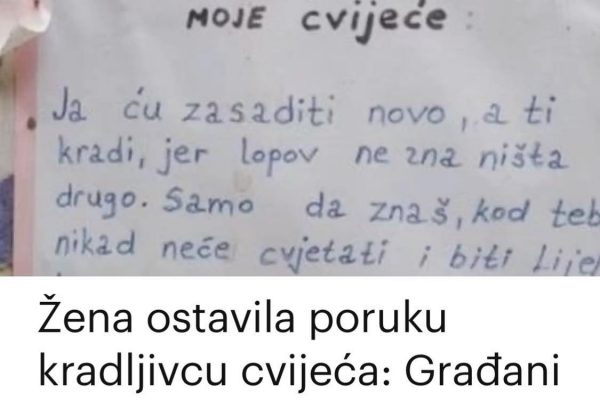 MOJE cvijeće:
Ja ću zasaditi novo, a ti
kradi, jer lopov ne zna ništa
drugo. Samo da znaš, kod teb
nikad neće cvjetati i biti Lije
Žena ostavila poruku
kradljivcu cvijeća: Građani